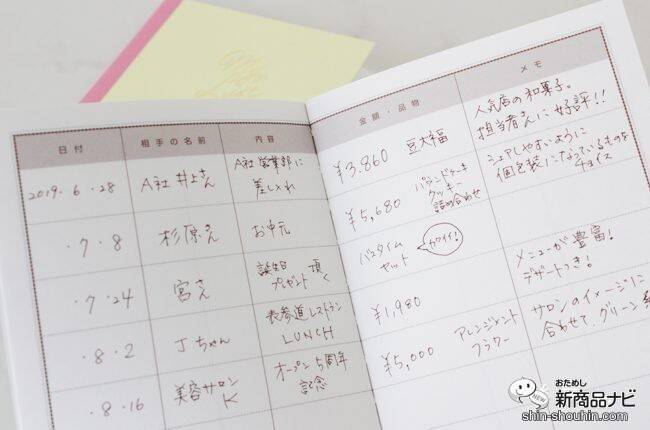 日付 相手の名前 内容 金額・品物 メモ
2019・6・28 A社 井上さん A社 営業部に
差し入れ
¥3,860 豆大福
人気店の和菓子。
担当者さんに好評!!
・7・8 杉原さん お中元
¥5,680 パウンドケーキ
クッキー
詰め合わせ
シェアしやすいように
個包装になっているものを
チョイス
・7・24 宮さん 誕生日
プレゼント 頂く
バスタイム
セット カワイイ!
・8・2 Jちゃん 表参道レストラン
LUNCH
¥1,980
メニューが豊富!
デザートつき!
・8・16 美容サロン
K
オープン5周年
記念
¥5,000 アレンジメント
フラワー
サロンのイメージに
合わせて、グリーン
おためし
新商品ナビ
NEW
shin-shouhin.com